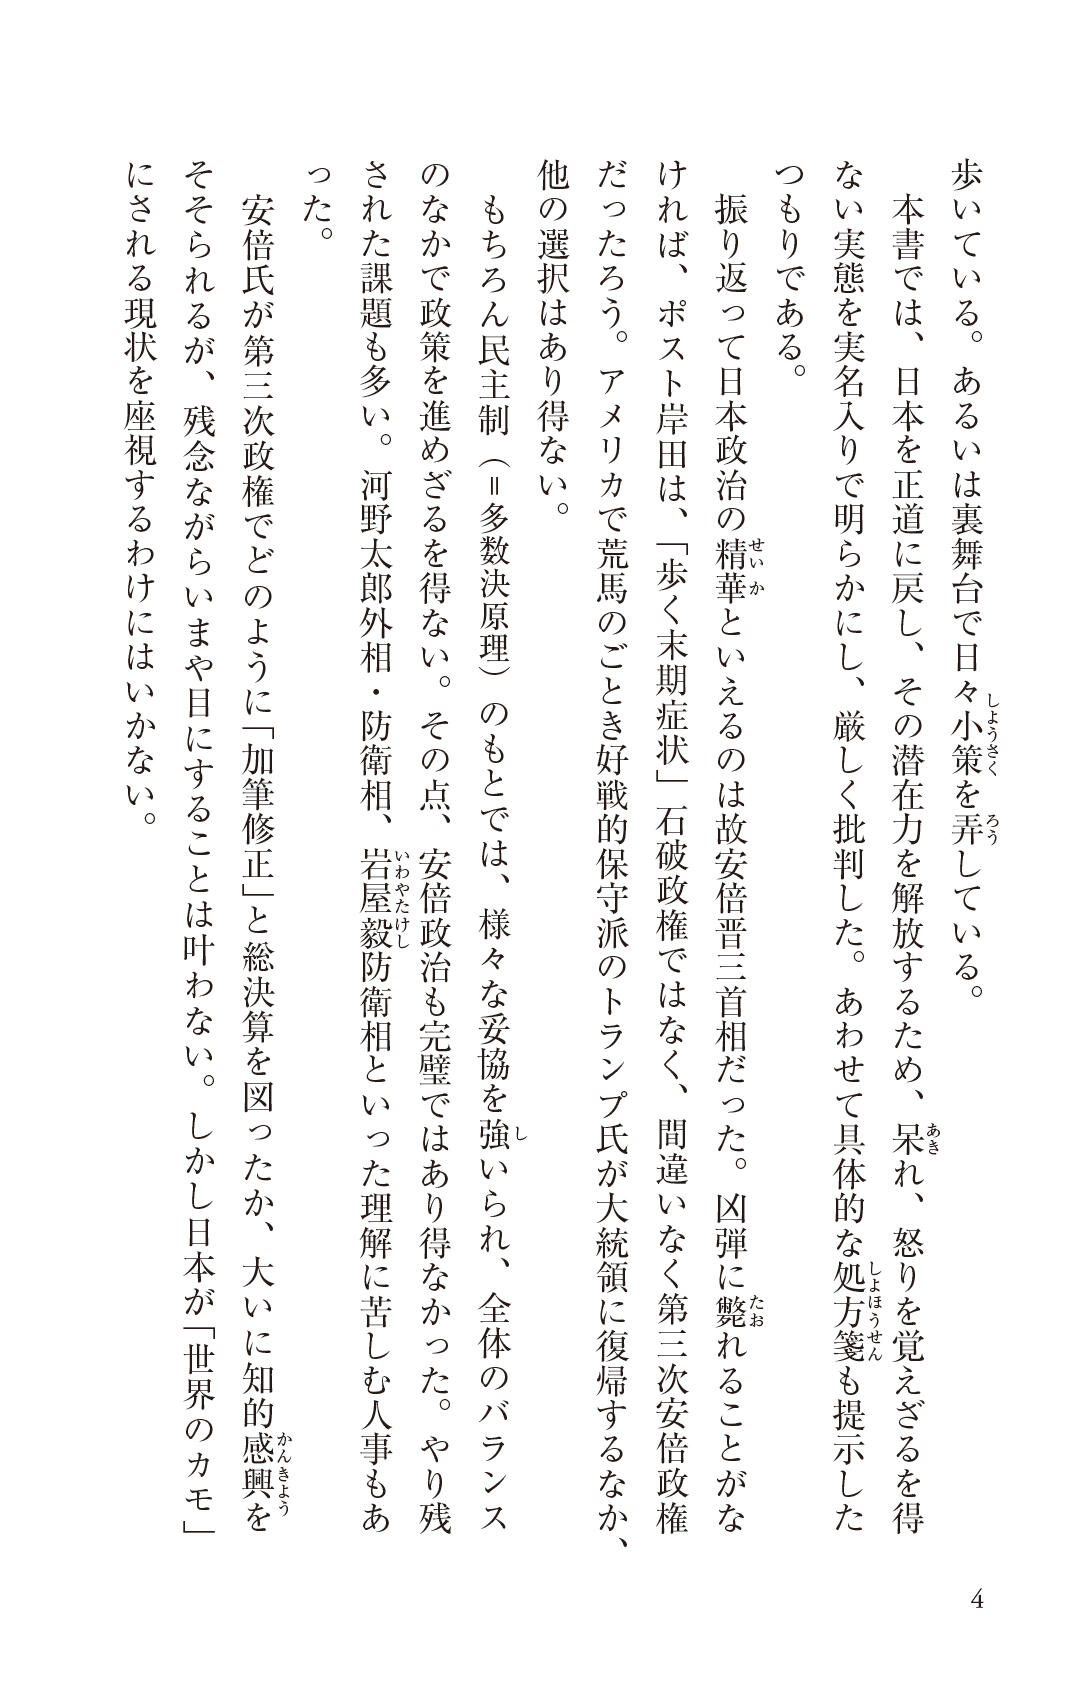 歩いている。あるいは裏舞台で日々小策を弄している。
　本書では、日本を正道に戻し、その潜在力を解放するため、呆れ、怒りを覚えざるを得
ない実態を実名入りで明らかにし、厳しく批判した。あわせて具体的な処方箋も提示した
つもりである。
　振り返って日本政治の精華といえるのは故安倍晋三首相だった。凶弾に斃れることがな
ければ、ポスト岸田は、「歩く末期症状」石破政権ではなく、間違いなく第三次安倍政権
だったろう。アメリカで荒馬のごとき好戦的保守派のトランプ氏が大統領に復帰するなか、
他の選択はあり得ない。
　もちろん民主制（＝多数決原理）のもとでは、様々な妥協を強いられ、全体のバランス
のなかで政策を進めざるを得ない。その点、安倍政治も完璧ではあり得なかった。やり残
された課題も多い。河野太郎外相・防衛相、岩屋毅防衛相といった理解に苦しむ人事もあ
った。
　安倍氏が第三次政権でどのように「加筆修正」と総決算を図ったか、大いに知的感興を
そそられるが、残念ながらいまや目にすることは叶わない。しかし日本が「世界のカモ」
にされる現状を座視するわけにはいかない。
4